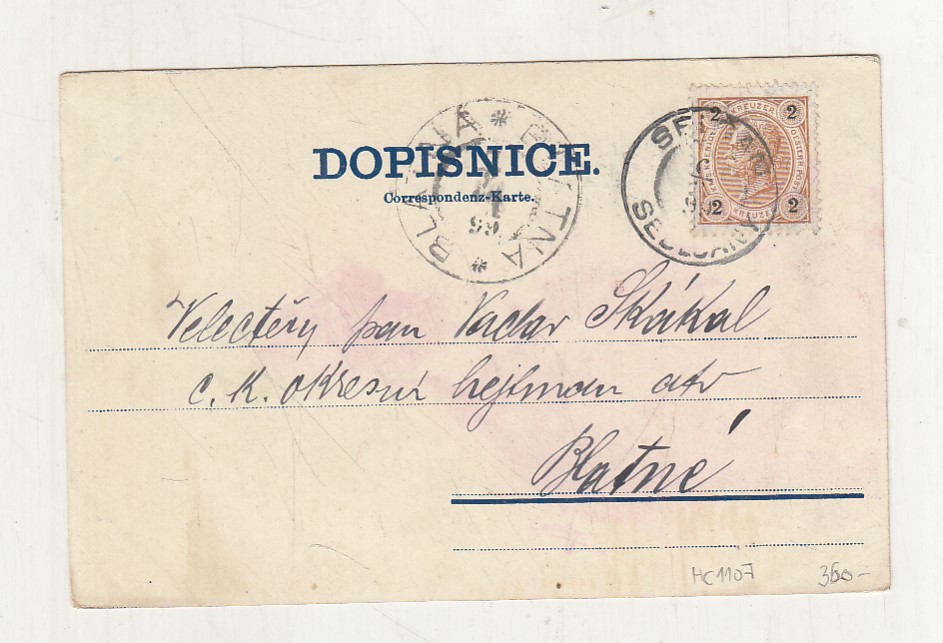 DOPISNICE.
Correspondenz-Karte.
BLATNA * BLATNÁ *
99
SELČAN
SEDLČANY
2 KREUZER 2
2 KREUZER 2
Velectěný pan Václav Skákal
c. K. okresní hejtman atd
Blatné
HC1107 350-